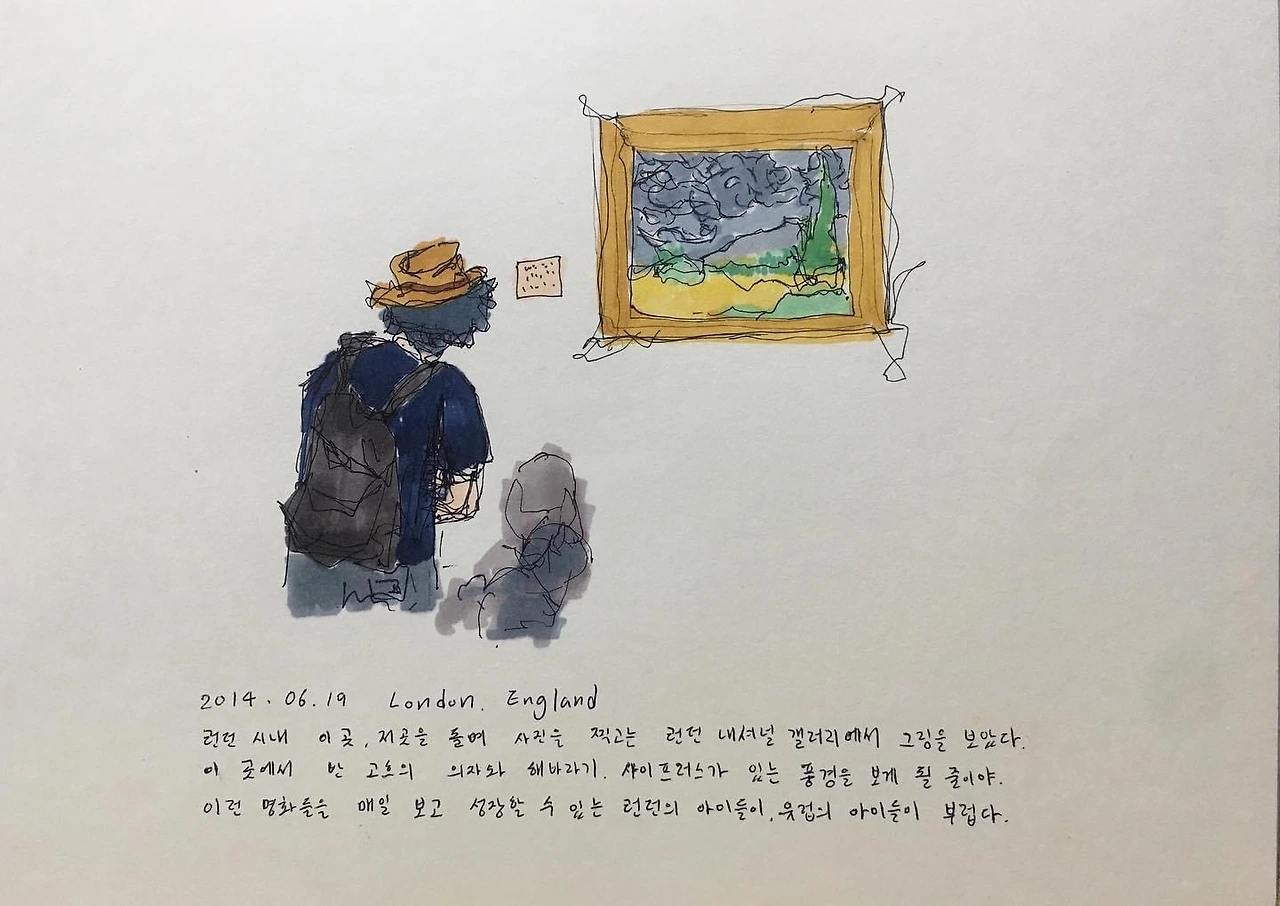 2014. 06. 19 London. England
런던 시내 이곳, 저곳을 돌며 사진을 찍고는 런던 내셔널 갤러리에서 그림을 보았다.
이 곳에서 반 고흐의 의자와 해바라기. 싸이프러스가 있는 풍경을 보게 될 줄이야.
이런 명화들을 매일 보고 성장할 수 있는 런던의 아이들이, 유럽의 아이들이 부럽다.